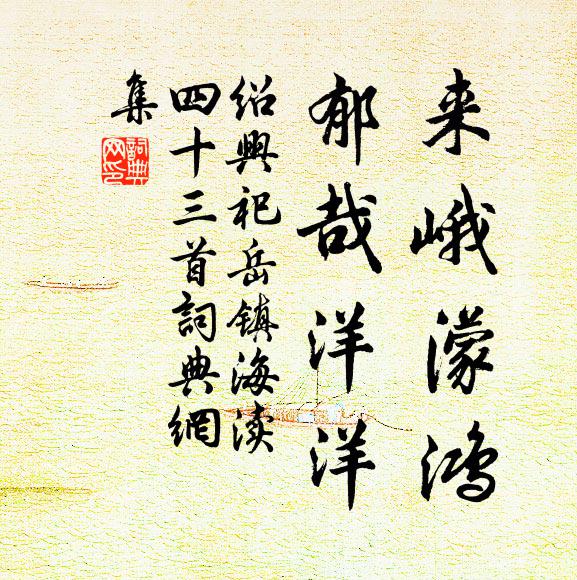 来峨濛鸿
郁哉洋洋
绍興祀岳镇海渎
四十三首詞典網
集
詞典
网印